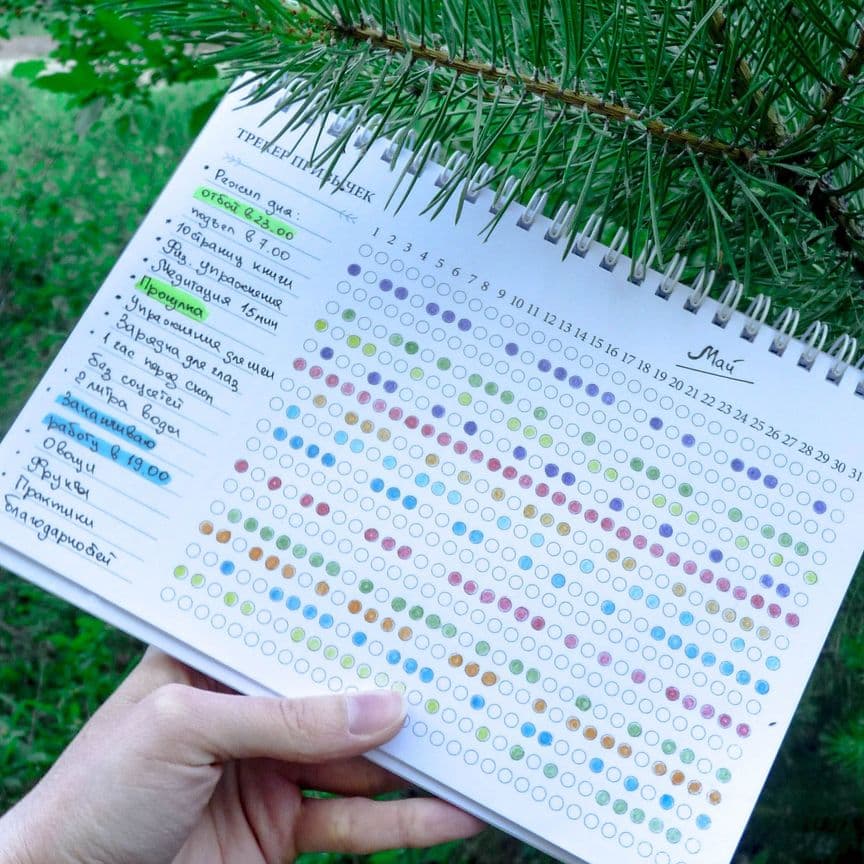 ТРЕКЕР ПРИВЫЧЕК
• Режим дня:
отбой в 23.00
подъем в 7.00
• 10 страниц книги
• Физ. упражнения
• Медитация 15 мин
• Прогулка
• Упражнение для шеи
• Зарядка для глаз
• 1 час перед сном
без соцсетей
• 2 литра воды
• Заканчиваю
работу в 19.00
• Овощи
• Фрукты
• Практики
благодарностей
Май
1 2 3 4 5 6 7 8 9 10 11 12 13 14 15 16 17 18 19 20 21 22 23 24 25 26 27 28 29 30 31